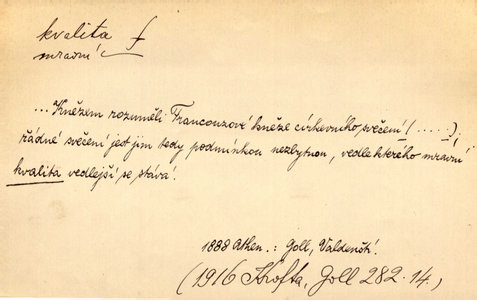 kvalita f
mravní
... Knězem rozuměli Francouzové kněze církevního svěcení (.....);
řádné svěcení jest jim tedy podmínkou nezbytnou, vedle kterého mravní
kvalita vedlejší se stává.
1888 Athen.: Goll, Valdenští.
(1916 Krofta, Goll 282.14.)